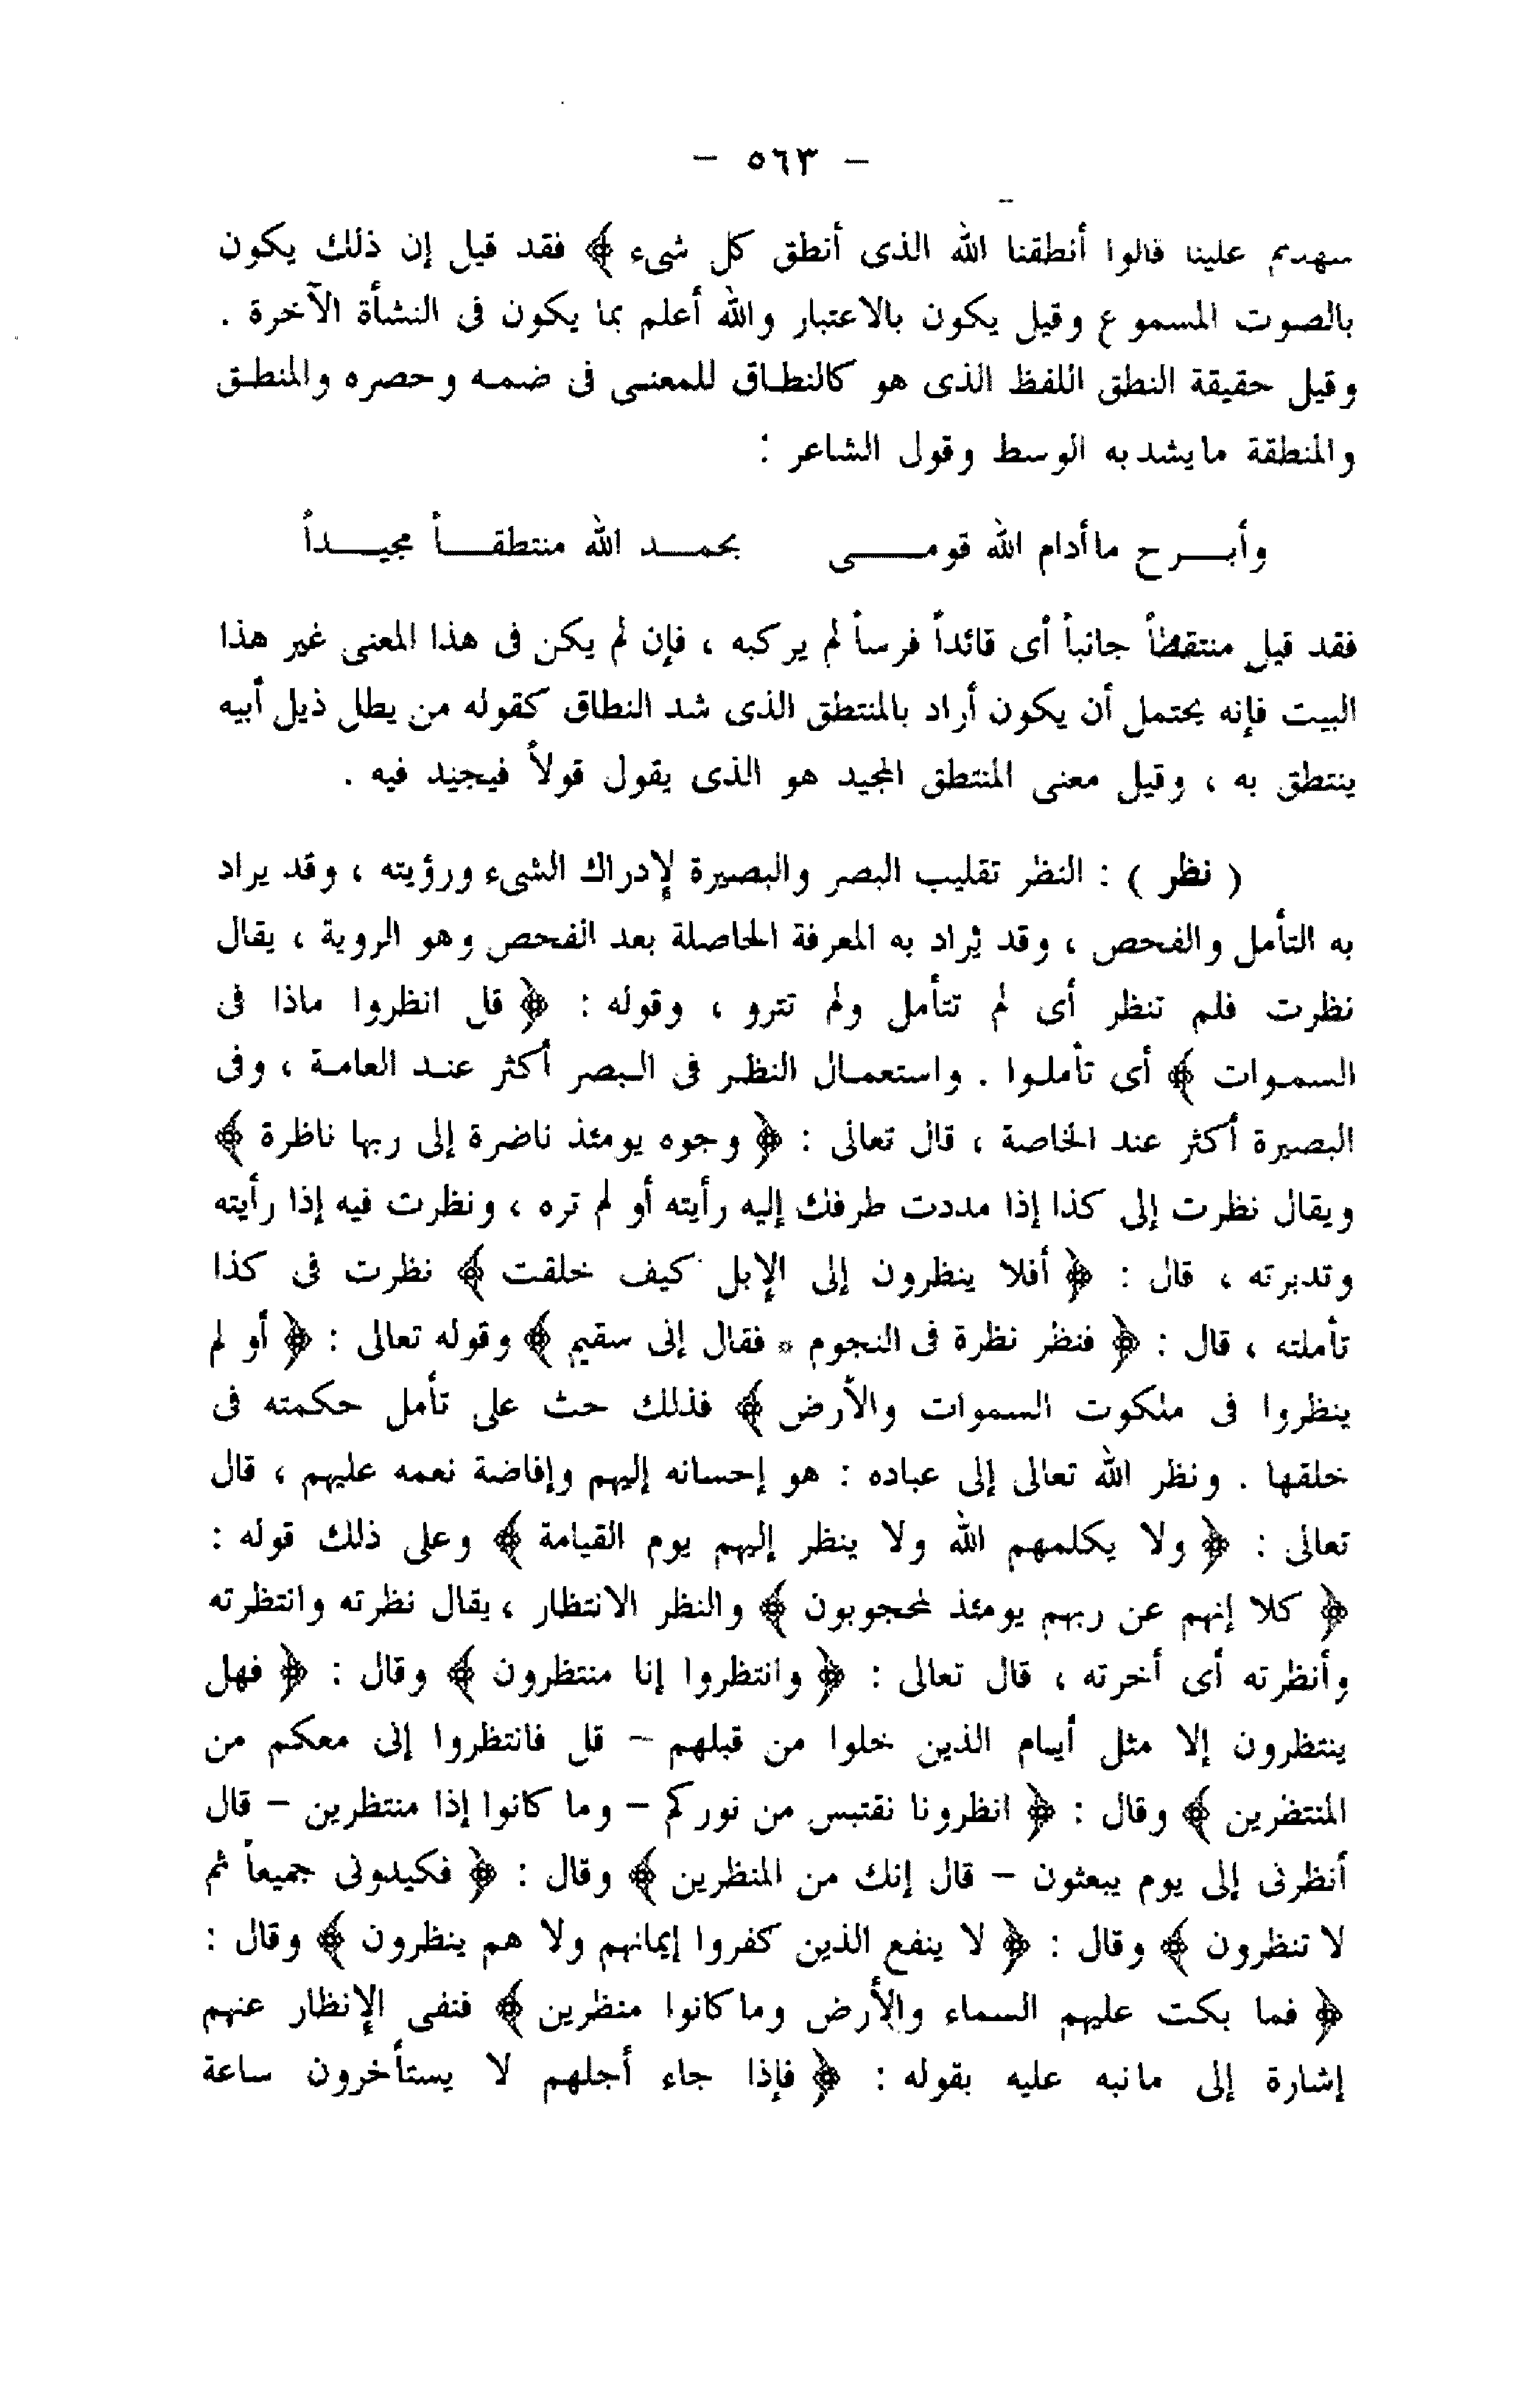 - ٥٦٣ -
شهدتم علينا قالوا أنطقنا الله الذى أنطق كل شىء ﴾ فقد قيل إن ذلك يكون
بالصوت المسموع وقيل يكون بالاعتبار والله أعلم بما يكون فى النشأة الآخرة .
وقيل حقيقة النطق اللفظ الذى هو كالنطاق للمعنى فى ضمه وحصره والمنطق
والمنطقة ما يشد به الوسط وقول الشاعر :
وأبرح ما أدام الله قومى بحمد الله منتطقاً مجيداً
فقد قيل منتقطاً جانباً أى قائداً فرساً لم يركبه ، فإن لم يكن فى هذا المعنى غير هذا
البيت فإنه يحتمل أن يكون أراد بالمنتطق الذى شد النطاق كقوله من يطل ذيل أبيه
ينتطق به ، وقيل معنى المنتطق المجيد هو الذى يقول قولاً فيجيد فيه .
( نظر ) : النظر تقليب البصر والبصيرة لإدراك الشىء ورؤيته ، وقد يراد
به التأمل والفحص ، وقد يُراد به المعرفة الحاصلة بعد الفحص وهو الروية ، يقال
نظرت فلم تنظر أى لم تتأمل ولم تترو ، وقوله : ﴿ قل انظروا ماذا فى
السموات ﴾ أى تأملوا . واستعمال النظر فى البصر أكثر عند العامة ، وفى
البصيرة أكثر عند الخاصة ، قال تعالى : ﴿ وجوه يومئذ ناضرة إلى ربها ناظرة ﴾
ويقال نظرت إلى كذا إذا مددت طرفك إليه رأيته أو لم تره ، ونظرت فيه إذا رأيته
وتدبرته ، قال : ﴿ أفلا ينظرون إلى الإبل كيف خلقت ﴾ نظرت فى كذا
تأملته ، قال : ﴿ فنظر نظرة فى النجوم * فقال إنى سقيم ﴾ وقوله تعالى : ﴿ أو لم
ينظروا فى ملكوت السموات والأرض ﴾ فذلك حث على تأمل حكمته فى
خلقها . ونظر الله تعالى إلى عباده : هو إحسانه إليهم وإفاضة نعمه عليهم ، قال
تعالى : ﴿ ولا يكلمهم الله ولا ينظر إليهم يوم القيامة ﴾ وعلى ذلك قوله :
﴿ كلا إنهم عن ربهم يومئذ لمحجوبون ﴾ والنظر الانتظار ، يقال نظرته وانتظرته
وأنظرته أى أخرته ، قال تعالى : ﴿ وانتظروا إنا منتظرون ﴾ وقال : ﴿ فهل
ينتظرون إلا مثل أيام الذين خلوا من قبلهم - قل فانتظروا إنى معكم من
المنتظرين ﴾ وقال : ﴿ انظرونا نقتبس من نوركم - وما كانوا إذا منتظرين - قال
أنظرنى إلى يوم يبعثون - قال إنك من المنظرين ﴾ وقال : ﴿ فكيدونى جميعاً ثم
لا تنظرون ﴾ وقال : ﴿ لا ينفع الذين كفروا إيمانهم ولا هم ينظرون ﴾ وقال :
﴿ فما بكت عليهم السماء والأرض وما كانوا منظرين ﴾ فنفى الإنظار عنهم
إشارة إلى ما نبه عليه بقوله : ﴿ فإذا جاء أجلهم لا يستأخرون ساعة